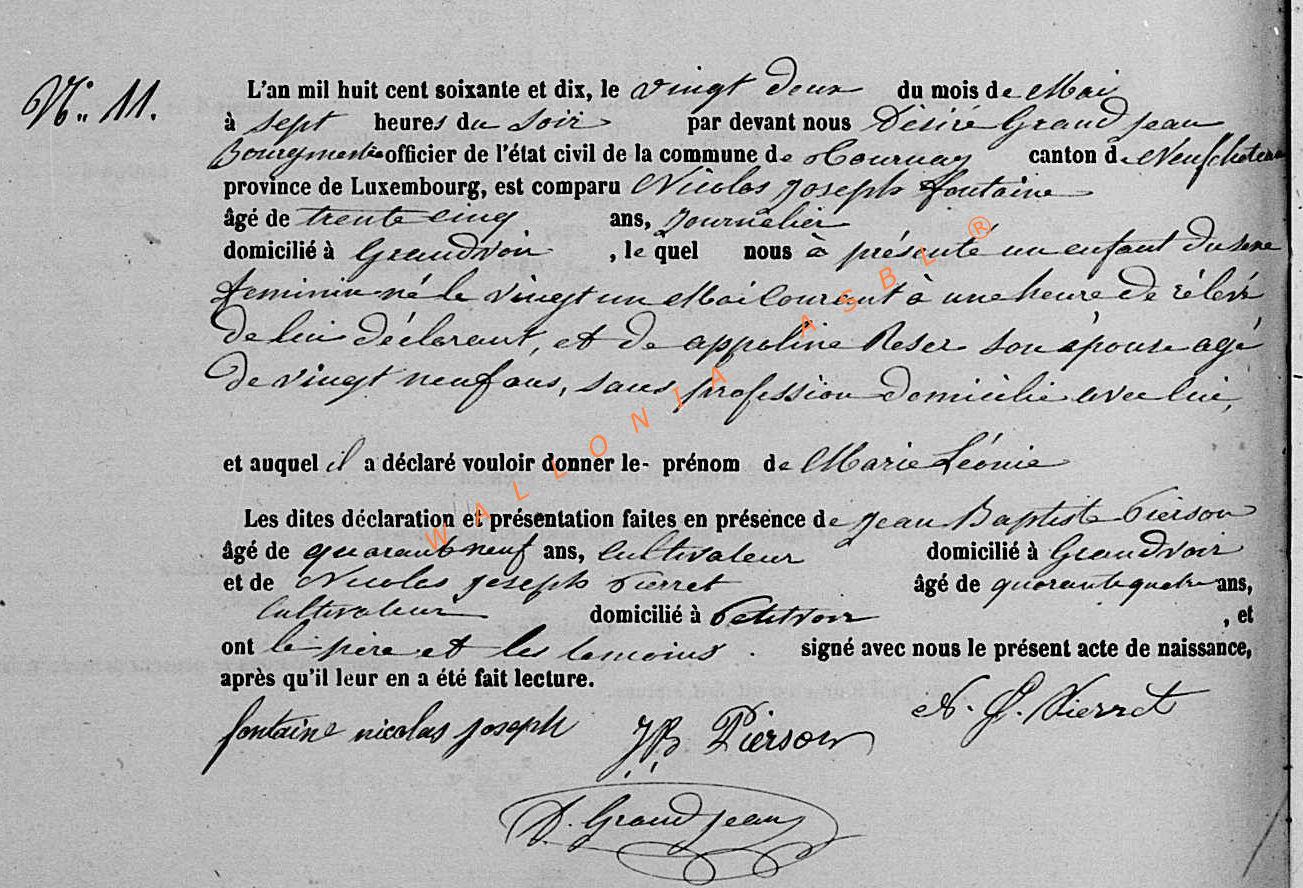 N° 11.
L'an mil huit cent soixante et dix, le vingt deux du mois de Mai
à sept heures du soir par devant nous Désiré Grandjean
Bourgmestre officier de l'état civil de la commune de Tournay canton de Neufchateau
province de Luxembourg, est comparu Nicolas Joseph fontaine
âgé de trente cinq ans, Journalier
domicilié à Grandvoir, le quel nous à présenté un enfant du sexe
feminin né le vingt un Mai courant à une heure de
de lui déclarant, et de appoline Reser son épouse agé
de vingt neuf ans, sans profession domicilié avec lui,
et auquel il a déclaré vouloir donner le- prénom de Marie Léonie
Les dites déclaration et présentation faites en présence de Jean Baptiste Pierson
âgé de quarante neuf ans, Cultivateur domicilié à Grandvoir
et de Nicolas Joseph Pierret âgé de quarante quatre ans,
Cultivateur domicilié à Petitvoir, et
ont le père et les temoins. signé avec nous le présent acte de naissance,
après qu'il leur en a été fait lecture.
fontaine nicolas joseph JB Pierson N. J. Pierret
D. Grandjean
WALLONIA ASBL ®